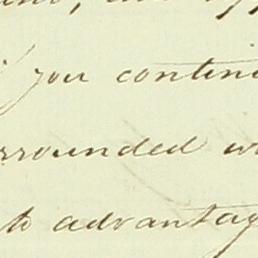 you contin
rrounded w
to advantag